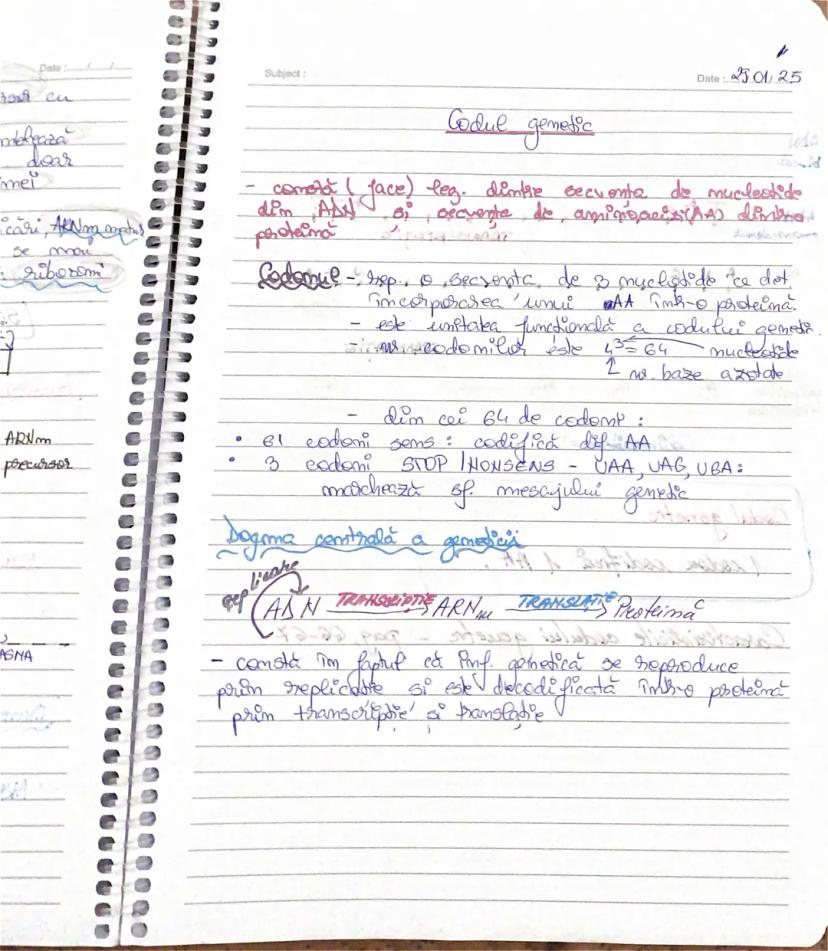 Date :
zoar cu
doar
mei
icări, ARNm matur
se mai
riboromi
ARNm
precursor
ASMA
Subject :
Date : 25.01.25
Codul genetic
- constă ( face) leg. dintre secvența de nucleotide
din ADN și secvența de aminoacizi (AA) dintr-o
proteină
Codonul - rep. o secvență de 3 nucleotide ce det.
încorporarea unui AA într-o proteină.
- este unitatea funcțională a codului genetic
- nr. codonilor este 4³ = 64 nucleotide
nr. baze azotate
- din cei 64 de codoni :
• 61 codoni sens : codifică dif. AA
• 3 codoni STOP / NONSENS - UAA, UAG, UGA :
marchează sf. mesajului genetic
Dogma centrală a geneticii
replicare
ADN TRANSCRIPȚIE ARNm TRANSLAȚIE Proteină
- constă în faptul că inf. genetică se reproduce
prin replicare și este decodificată într-o proteină
prin transcripție și translație